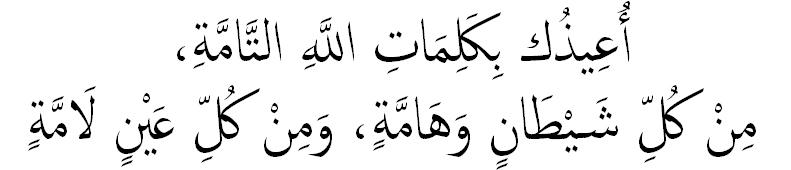 أُعِيذُك بِكَلِمَاتِ اللَّهِ التَّامَّةِ،
مِنْ كُلِّ شَيْطَانٍ وَهَامَّةٍ، وَمِنْ كُلِّ عَيْنٍ لَامَّةٍ